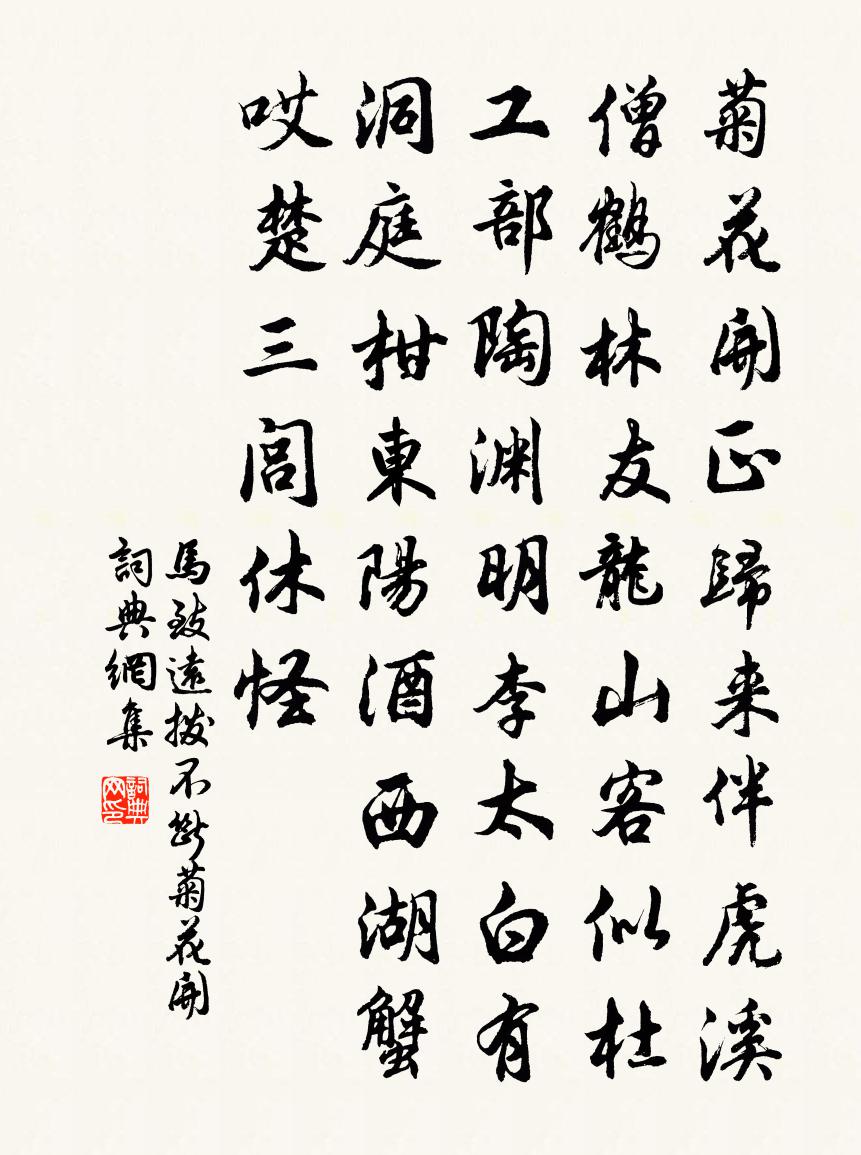 菊花開正歸来伴虎溪
僧鶴林友龍山客似杜
工部陶渊明李太白有
洞庭柑東陽酒西湖蟹
哎楚三閭休怪
馬致遠撥不斷菊花開
詞典網集
詞典网印